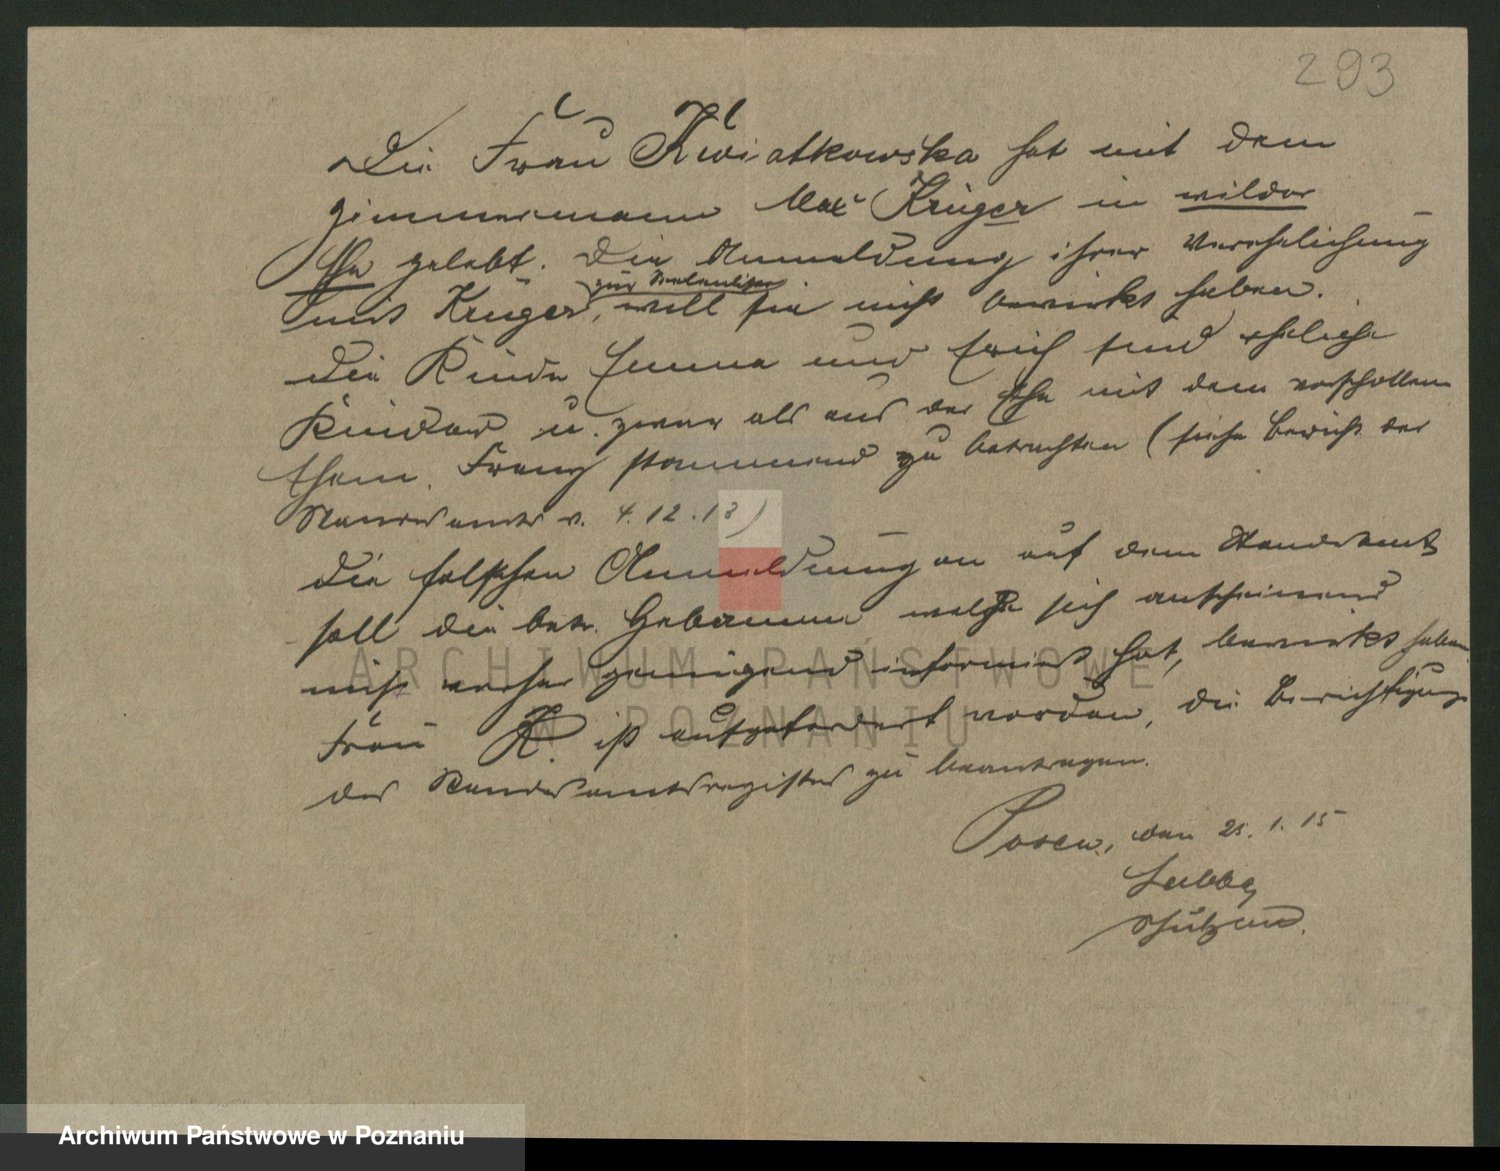 293
Die Frau Kwiatkowska hat mit dem
Zimmermann Max Krüger in wilder
Ehe gelebt. Die Anmeldung ihrer Verehelichung
mit Krüger, zur Seelenliste will sie nicht bewirkt haben.
Die Kinder Emma und Erich sind eheliche
Kinder u. zwar als aus der Ehe mit dem verschollenen
Franz stammend zu betrachten (siehe Bericht des
Standesamts v. 4.12.13)
Die falschen Anmeldungen auf dem Standesamt
soll die betr. Hebamme welche sich anscheinend
nicht vorher genügend informiert hat, bewirkt haben.
Frau K. ist aufgefordert worden, die Berichtigung
des Standesamtsregisters zu beantragen.
Posen, den 21. 1. 15
Schutzm.
ARCHIWUM PAŃSTWOWE
W POZNANIU
Archiwum Państwowe w Poznaniu